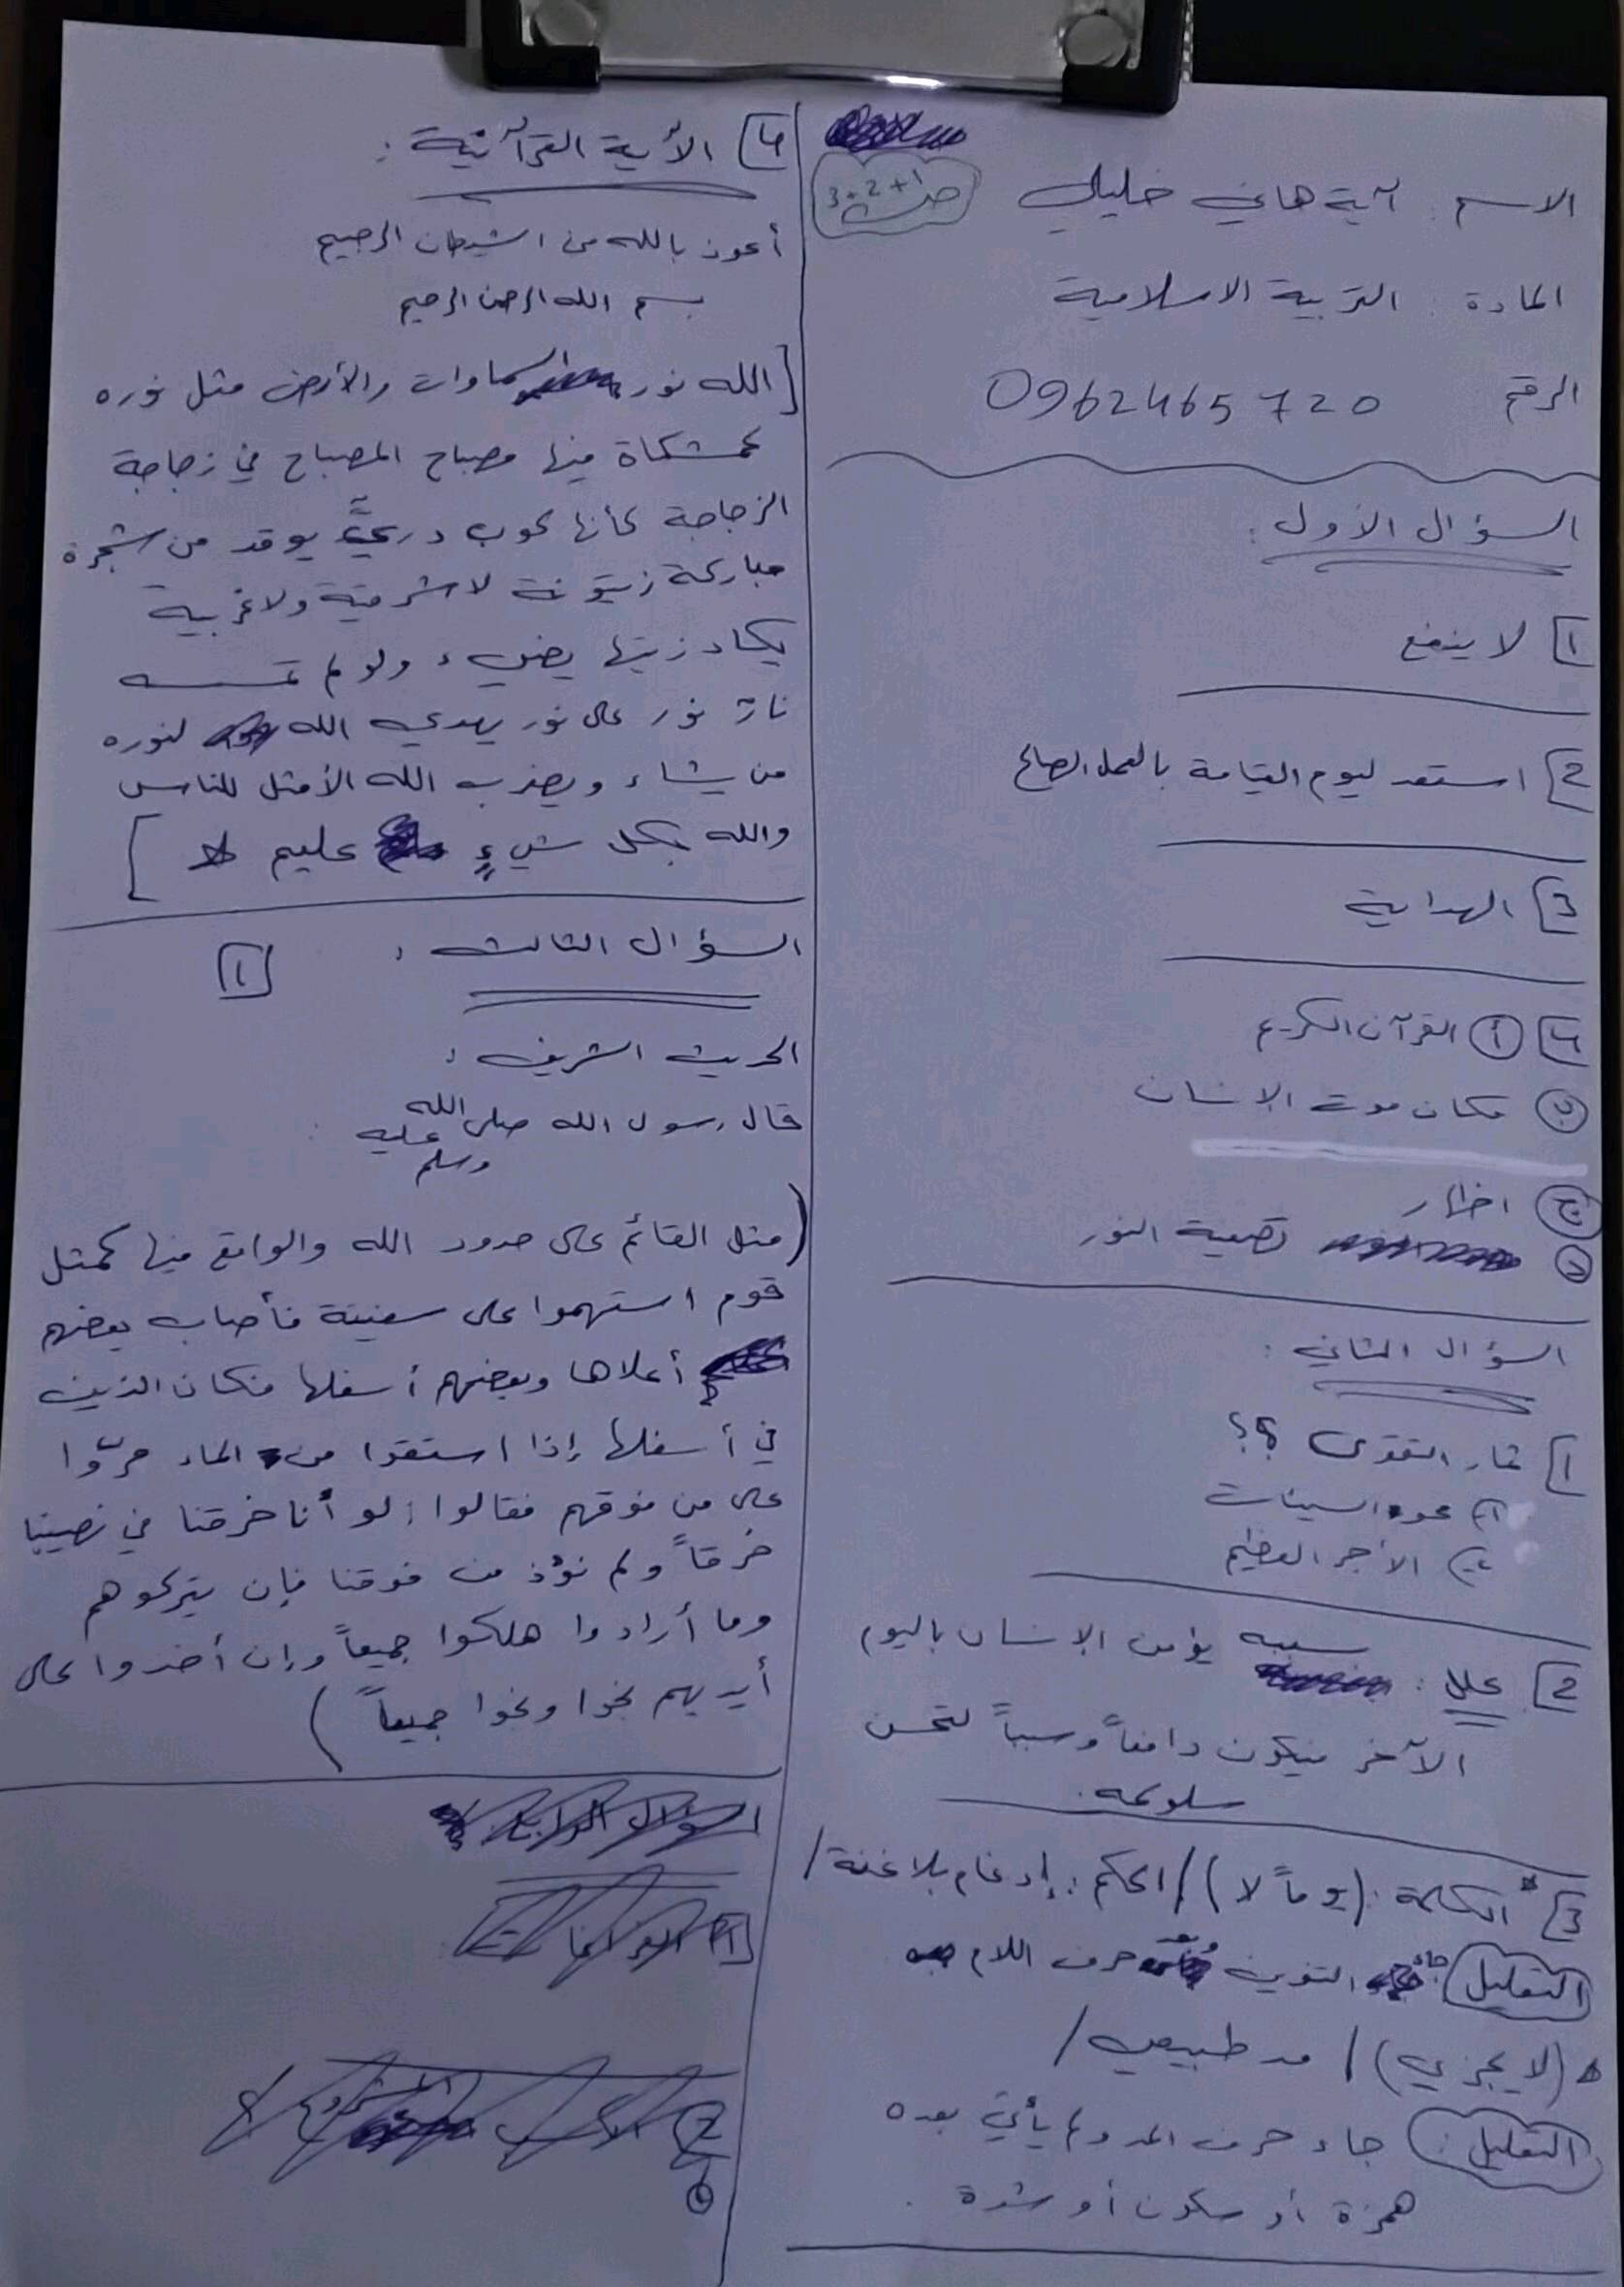 الاسم : آية هاني خليل
ص 1+2+3
المادة : التربية الاسلامية
الرقم 0962465720
السؤال الأول :
1] لا ينفع
2] استعد ليوم القيامة بالعمل الصالح
3] الهداية
4] أ القرآن الكريم
ب مكان موت الإنسان
ج اظهار
د تصفية النور
السؤال الثاني :
1] ثمار التقوى ؟؟
1) محو السيئات
2) الأجر العظيم
2] علل : سببه يؤمن الإنسان باليوم
الآخر فيكون دافعاً وسبباً لتحسن
سلوكه.
3] * الكلمة : (يوماً لا) / الحكم : إدغام بلا غنة /
التعليل جاء التنوين وبعده حرف اللام
(لا يجزي) / مد طبيعي /
التعليل : جاء حرف المد ولم يأتي بعده
همزة أو سكون أو شدة .
4] الأية القرآنية :
أعوذ بالله من الشيطان الرجيم
بسم الله الرحمن الرحيم
[الله نور السماوات والأرض مثل نوره
كمشكاة فيها مصباح المصباح في زجاجة
الزجاجة كأنها كوب دريٌّ يوقد من شجرة
مباركة زيتونة لا شرقية ولا غربية
يكاد زيتها يضيء ولو لم تمسسه
نارٌ نور على نور يهدي الله لنوره
من يشاء ويضرب الله الأمثل للناس
والله بكل شيءٍ عليم ]
السؤال الثالث : 1
الحديث الشريف :
قال رسول الله صلى الله عليه وسلم :
(مثل القائم على حدود الله والواقع فيها كمثل
قوم استهموا على سفينة فأصاب بعضهم
أعلاها وبعضهم أسفلها فكان الذين
في أسفلها إذا استقوا من الماء مرّوا
على من فوقهم فقالوا : لو أنا خرقنا في نصيبنا
خرقاً ولم نؤذ من فوقنا فإن يتركوهم
وما أرادوا هلكوا جميعاً وإن أخذوا على
أيديهم نجوا ونجوا جميعاً )
السؤال الرابع :